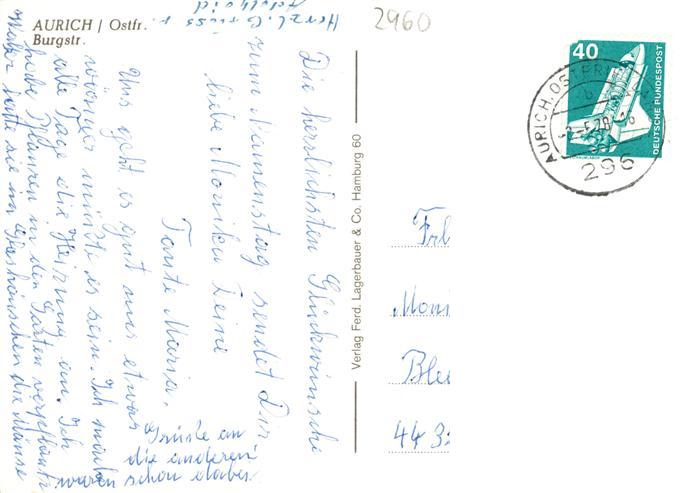 AURICH / Ostfr.
Burgstr.
2960
Herzl. Gruss v.
Die herzlichsten Glückwünsche
zum Namenstag sendet Dir
liebe Monika Deine
Tante Maria.
Uns geht es gut nur etwas
wärmer müßte es sein. Ich mache
alle Tage die Heizung an. Ich
habe Pflanzen in den Garten verpflanzt
hatte sie im die Mäuse
waren schon dabei.
Grüße an
die anderen
Verlag Ferd. Lagerbauer & Co. Hamburg 60
40
DEUTSCHE BUNDESPOST
AURICH, OSTFR
296
Frl
Moni
Blei
44 3